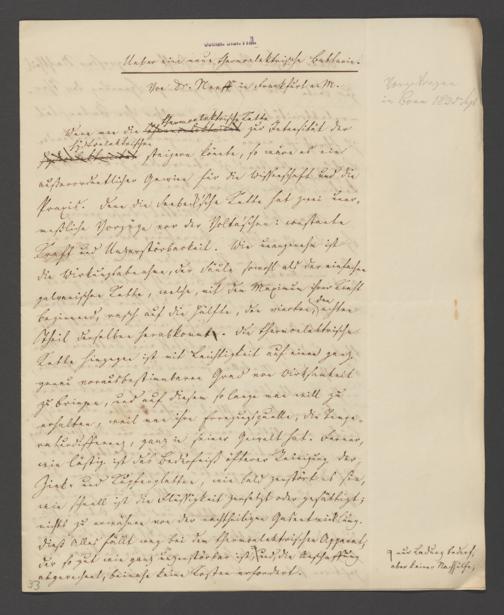 Ueber eine neue thermoelektrische Batterie.
Von Dr. Neeff in Frankfurt a. M.
Vorgetragen
in Bonn 1835
Wenn man die thermoelektrische Kette zur Intensität der
hydroelektrischen steigern könnte, so wäre es ein
außerordentlicher Gewinn für die Wissenschaft und die
Praxis. Denn die Seebeck'sche Kette hat zwei uner-
meßliche Vorzüge vor der Volta'schen: constante
Kraft und Unzerstörbarkeit. Wie unangenehm ist
die Wirkungsabnahme, der Säule sowohl als der einfachen
galvanischen Kette, welche, mit dem Maximum ihrer Kraft
beginnend, rasch auf die Hälfte, den vierten, den achten
Theil derselben herabkommt. Die thermoelektrische
Kette hingegen ist mit Leichtigkeit auf einen ganz
genau vorausbestimmbaren Grad von Wirksamkeit
zu bringen, und auf diesem so lange man will zu
erhalten, weil man ihre Erregungsquelle, die Tempe-
raturdifferenz, ganz in seiner Gewalt hat. Ferner,
wie lästig ist das Bedürfniß öfterer Reinigung der
Zink- und Kupferplatten, wie bald zerstört es sie,
wie schnell ist die Flüssigkeit zersetzt oder gesättigt;
nichts zu erwähnen von der nachtheiligen Gasentwicklung.
Dieß Alles fällt weg bei dem thermoelektrischen Apparat,
der so gut wie ganz unzerstörbar ist, und, die Anschaffung
abgerechnet, beinahe keine Kosten erfordert.
nur Ladung bedarf,
aber keiner Nachhülfe,
33